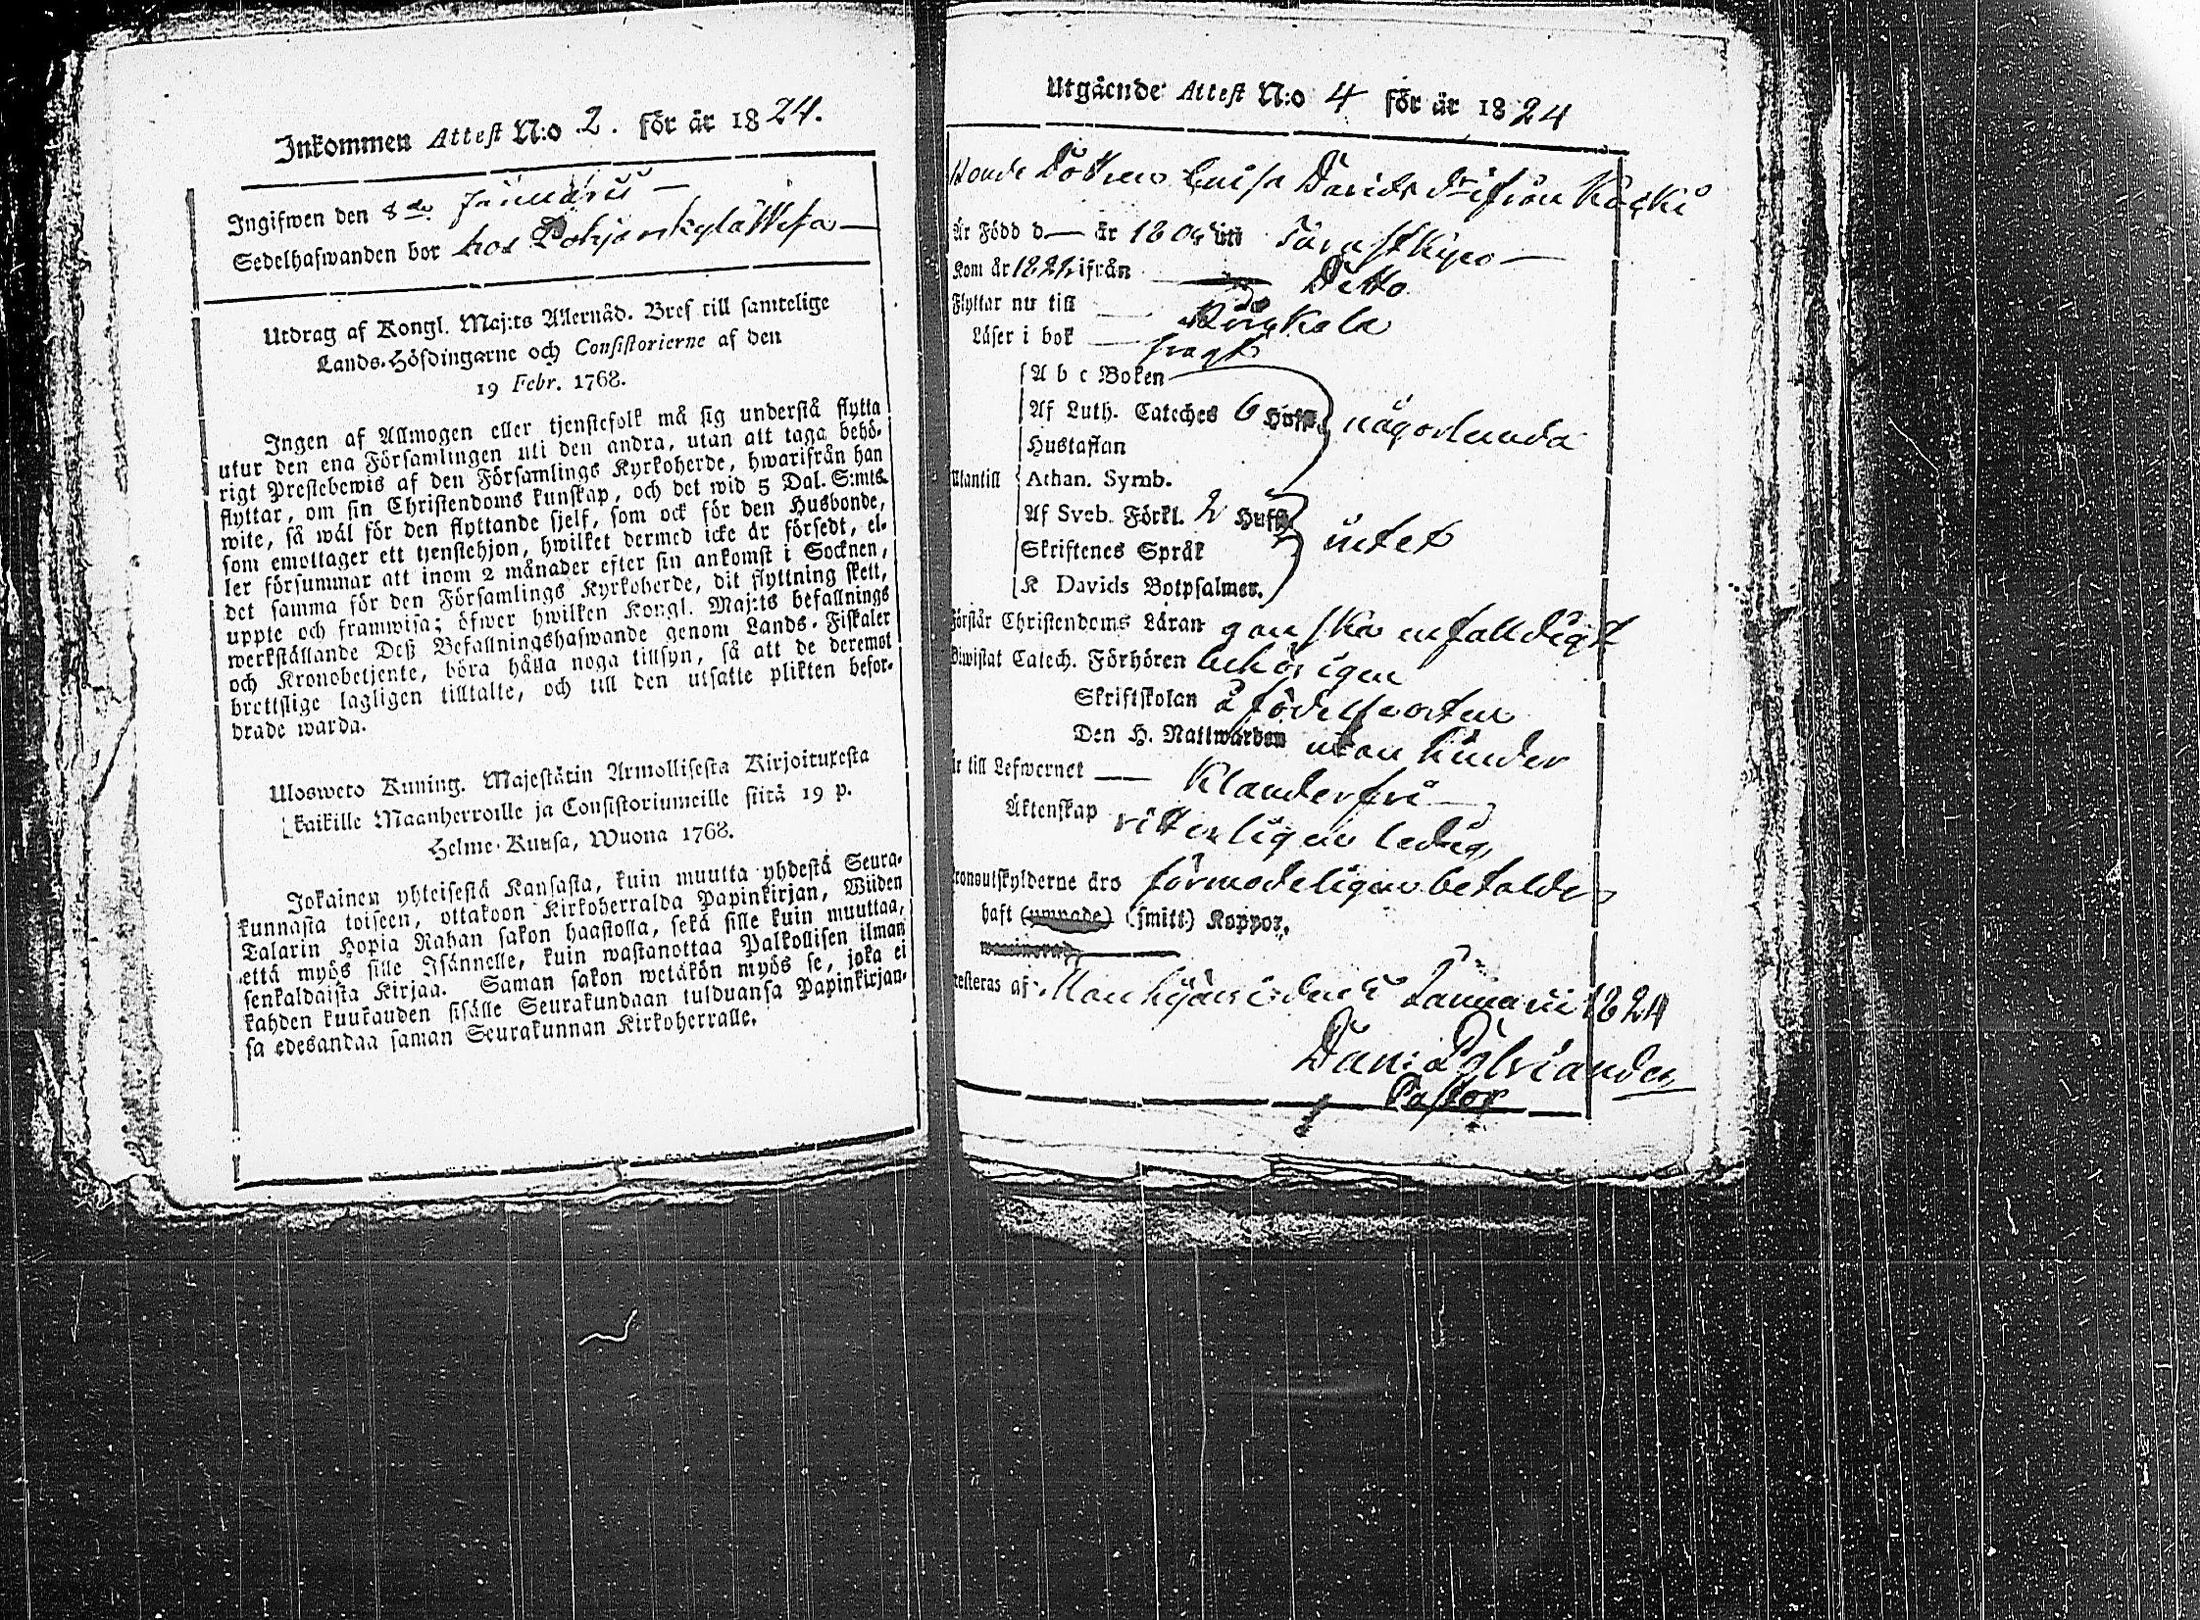 Inkommen Attest N:o 2. för år 1824.
Ingifwen den 8de Januarii —
Sedelhafwanden bor hos Pohjankylä Wesa —
Utdrag af Kongl. Maj:ts Allernåd. Bref till samtelige
Lands-Höfdingarne och Consistorierne af den
19 Febr. 1768.
Ingen af Allmogen eller tjenstefolk må sig understå flytta
utur den ena Församlingen uti den andra, utan att taga behö-
rigt Prestebewis af den Församlings Kyrkoherde, hwarifrån han
flyttar, om sin Christendoms kunskap, och det wid 5 Dal. S:mts.
wite, så wäl för den flyttande sjelf, som ock för den Husbonde,
som emottager ett tjenstehjon, hwilket dermed icke är försedt, el-
ler försummar att inom 2 månader efter sin ankomst i Socknen,
det samma för den Församlings Kyrkoherde, dit flyttning skett,
uppte och framwisa; öfwer hwilken Kongl. Maj:ts befallnings
werkställande Deß Befallningshafwande genom Lands-Fiskaler
och Kronobetjente, böra hålla noga tillsyn, så att de deremot
brettslige lagligen tilltalte, och till den utsatte plikten befor-
drade warda.
Ulosweto Kuning. Majestätin Armollisesta Kirjoituxesta
kaikille Maanherroille ja Consistoriumeille siitä 19 p.
Helme-Kuusa, Wuona 1768.
Jokainen yhteisestä Kansasta, kuin muutta yhdestä Seura-
kunnasta toiseen, ottakoon Kirkoherralda Papinkirjan, Wiiden
Talarin Hopia Rahan sakon haastolla, sekä sille kuin muuttaa,
että myös sille Isännelle, kuin wastanottaa Palkollisen ilman
senkaldaista Kirjaa. Saman sakon wetäkön myös se, joka ei
kahden kuukauden sisälle Seurakundaan tulduansa Papinkirjaa-
sa edesandaa saman Seurakunnan Kirkoherralle.
Utgående Attest N:o 4 för år 1824
Luisa Davids dr ifrån Koski
Är Född d — år 180 uti
Kom år 1822 ifrån — Ditto
Flyttar nu till —
Läser i bok — svagt
A b c Boken
Af Luth. Cateches 6 Hufst. någorlunda
Hustaflan
Utantill Athan. Symb.
Af Sveb. Förkl. 2 Hufst.
Skriftenes Språk intet
K Davids Botpsalmer.
Förstår Christendoms Läran ganska enfalldigt
Biwistat Catech. Förhören behörigen
Skriftskolan å födelseorten
Den H. Nattwarden utan hinder
Är till Lefwernet — Klanderfri —
Äktenskap vitterligen ledig,
Kronoutskylderne äro förmodeligen betalde
haft (ympade) (smitt.) Koppor.
testeras af Januarii 1824
Dan: Polviander
Pastor